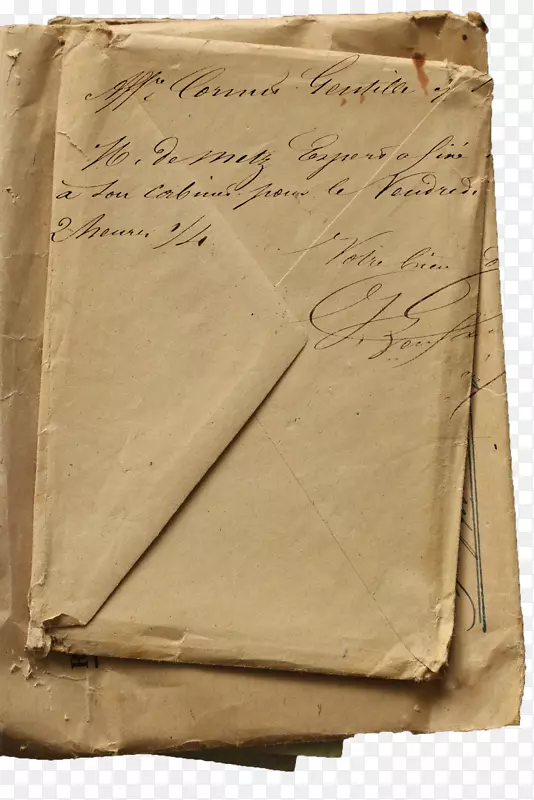 Affre Cornus Gentille
M. de Metz Expert a fixé
à son cabinet pour le Vendredi
2 heures 1/4
Votre bien